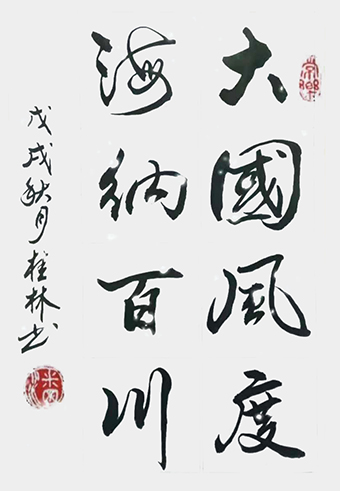 大國風度
海納百川
戊戌秋月桂林书